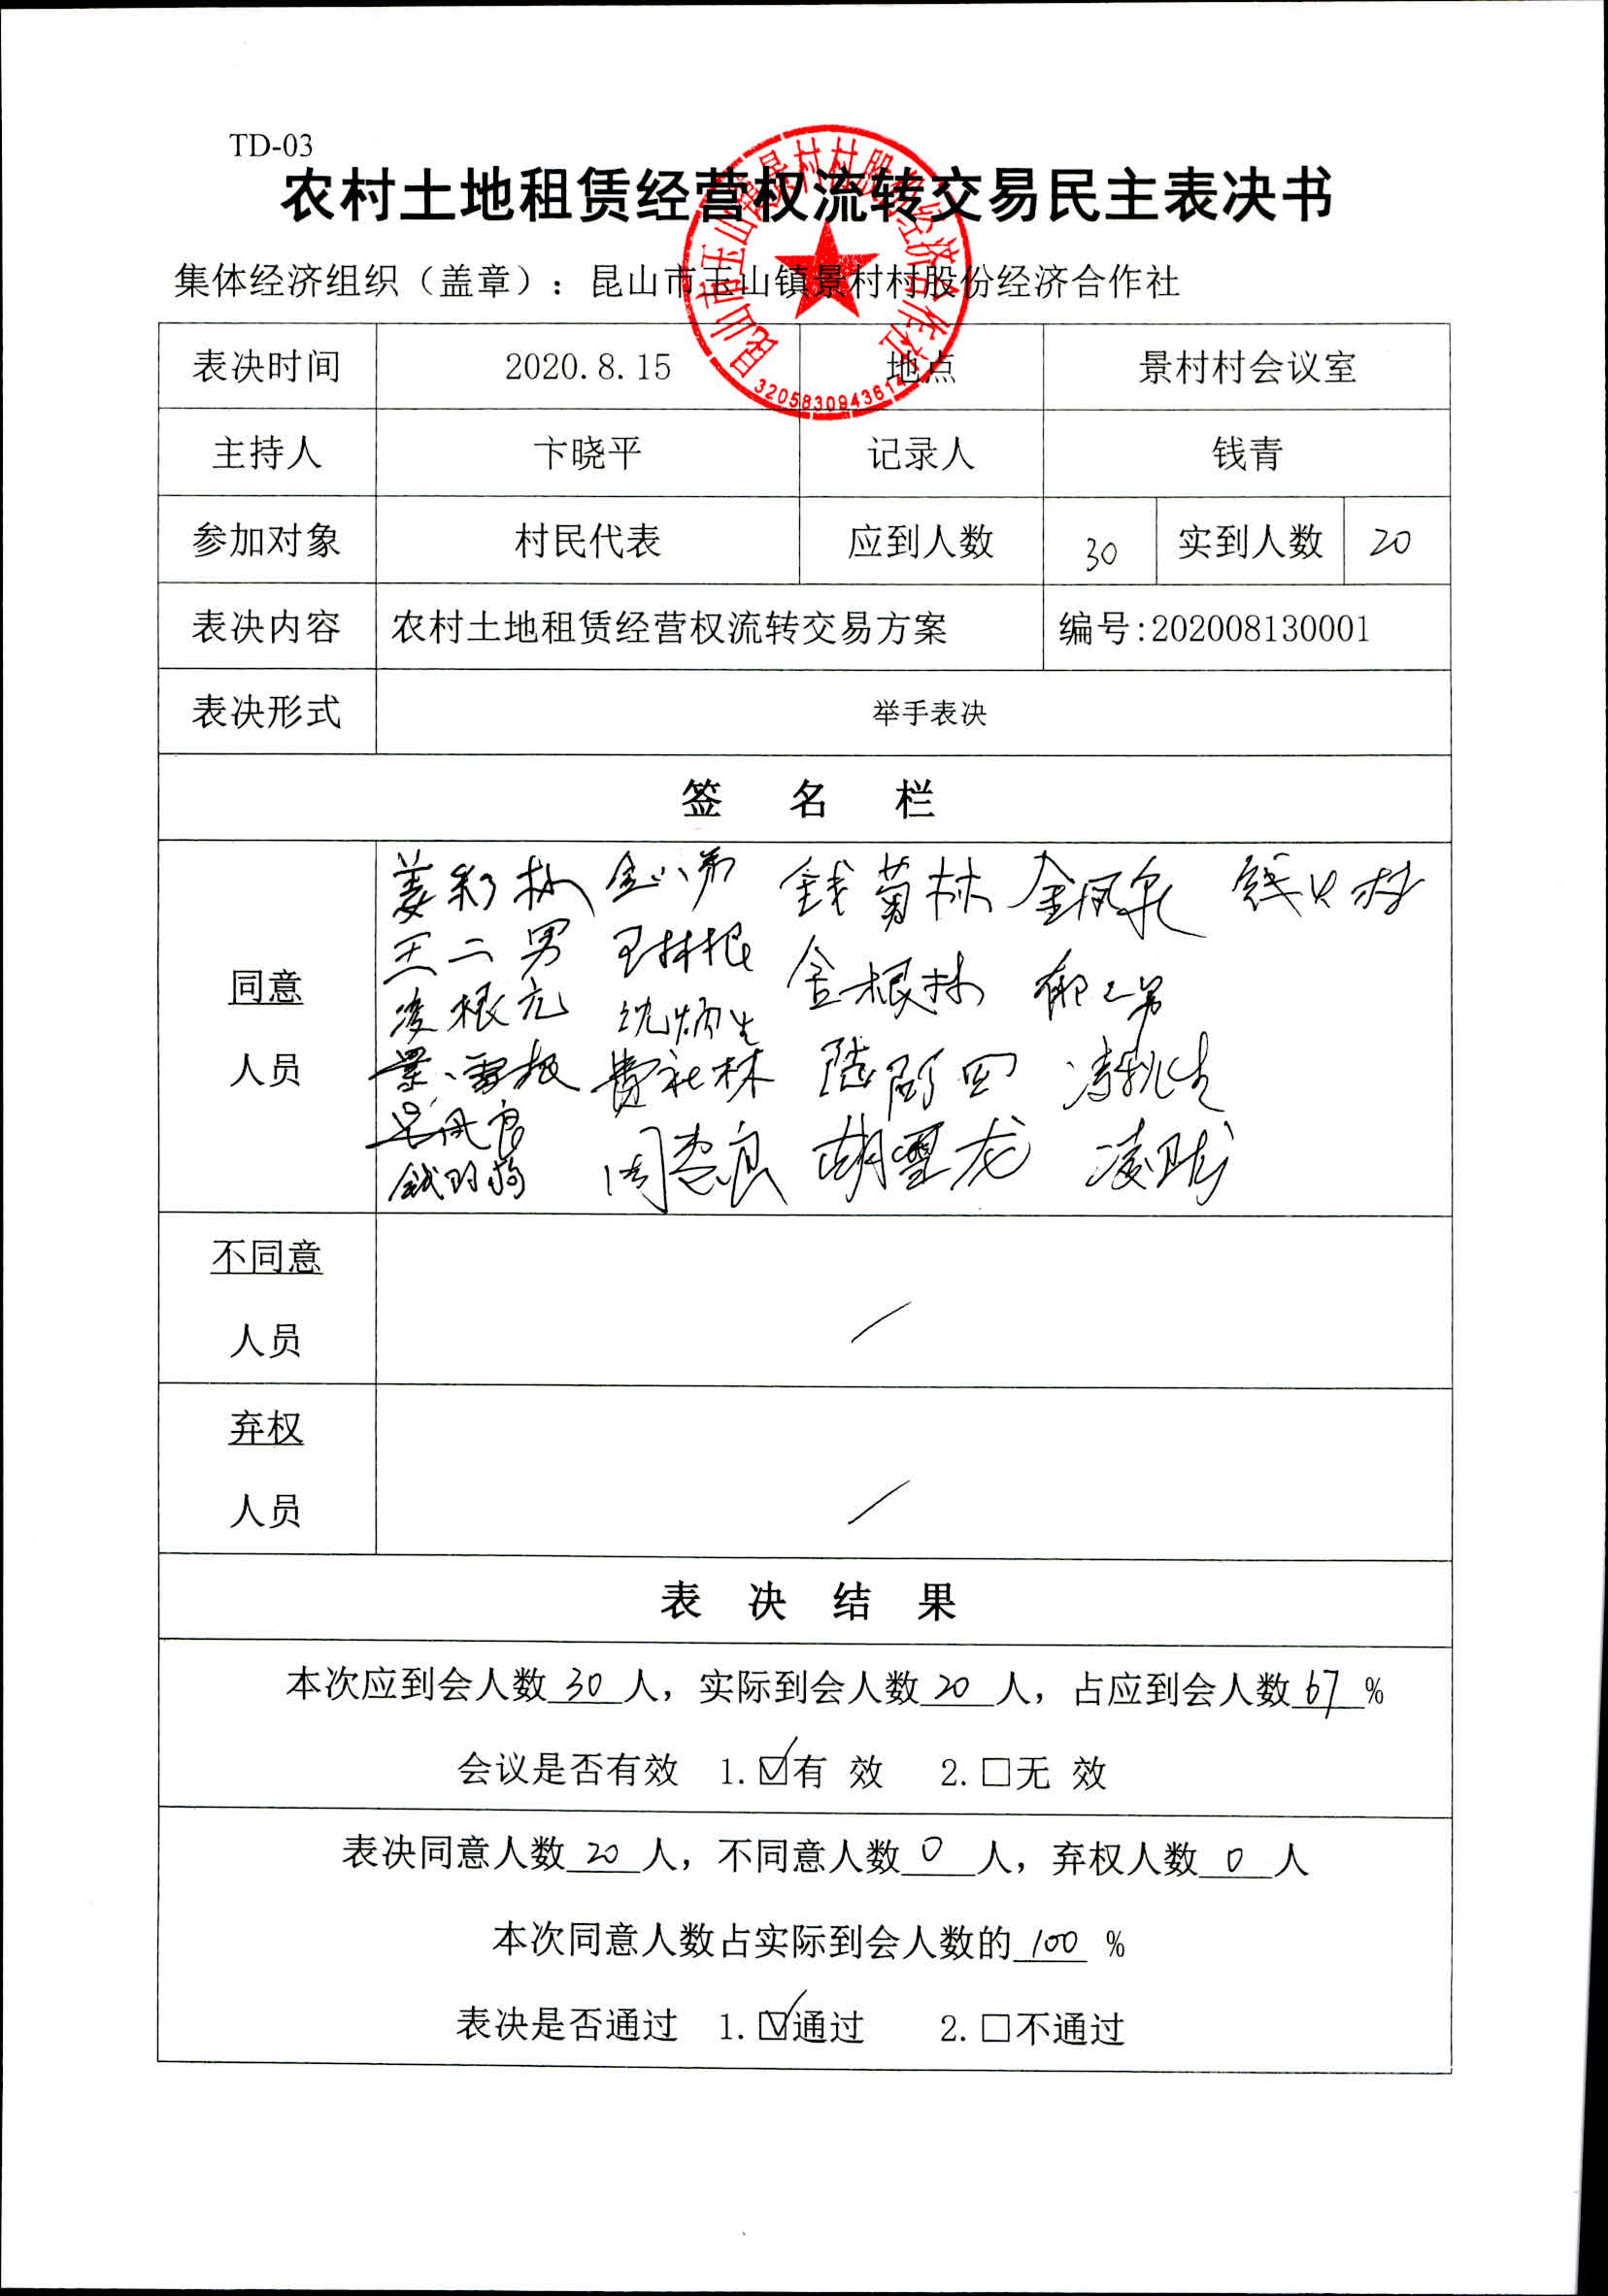 TD-03
农村土地租赁经营权流转交易民主表决书
集体经济组织（盖章）：昆山市玉山镇景村村股份经济合作社
昆山市玉山镇景村村股份经济合作社
表决时间 2020.8.15 地点 景村村会议室
主持人 卞晓平 记录人 钱青
参加对象 村民代表 应到人数 30 实到人数 20
表决内容 农村土地租赁经营权流转交易方案 编号:202008130001
表决形式 举手表决
签 名 栏
同意
人员
姜彩林 金小弟 钱菊林 金凤泉
王二男 王林根 金根林 郁二男
凌根元 沈炳生
费社林
周惠良 胡雪龙
不同意
人员
/
弃权
人员
/
表 决 结 果
本次应到会人数 30 人，实际到会人数 20 人，占应到会人数 67 %
会议是否有效 1.☑有 效 2.□无 效
表决同意人数 20 人，不同意人数 0 人，弃权人数 0 人
本次同意人数占实际到会人数的 100 %
表决是否通过 1.☑通过 2.□不通过